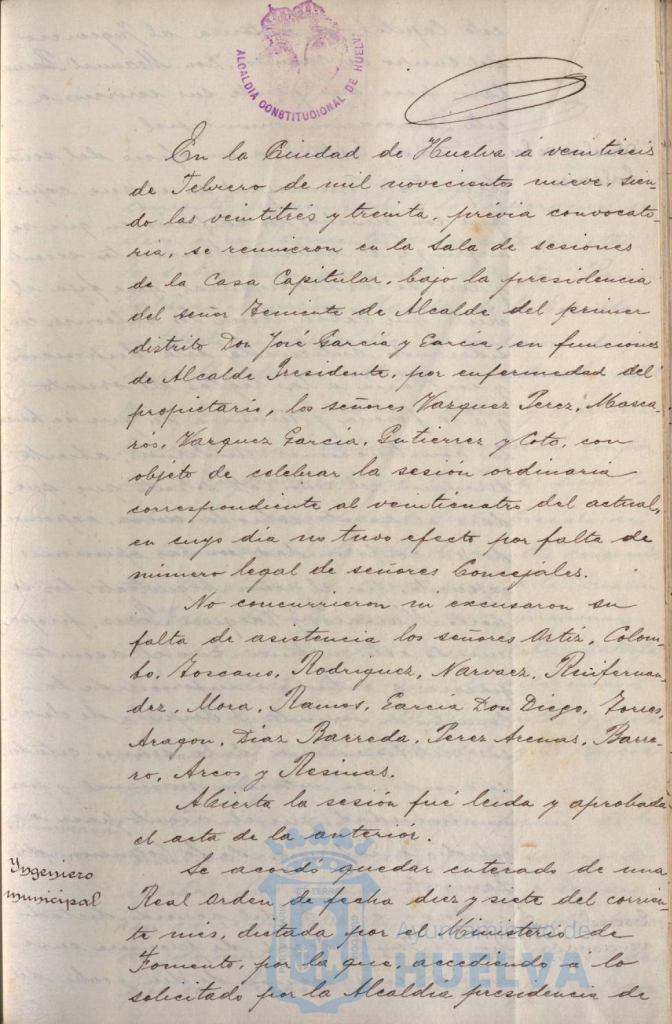 ALCALDIA CONSTITUCIONAL DE HUELVA
En la Ciudad de Huelva á veintiseis
de Febrero de mil novecientos nueve, sien-
do las veintitrés y treinta, prévia convocato-
ria, se reunieron en la Sala de sesiones
de la Casa Capitular, bajo la presidencia
del señor Teniente de Alcalde del primer
distrito Don José García y García, en funciones
de Alcalde Presidente, por enfermedad del
propietario, los señores Vazquez Perez, Masca-
rós, Vazquez García, Gutierrez y Coto, con
objeto de celebrar la sesión ordinaria
correspondiente al veinticuatro del actual,
en cuyo dia no tuvo efecto por falta de
número legal de señores Concejales.
No concurrieron ni excusaron su
falta de asistencia los señores Ortiz, Colom-
bo, Toscano, Rodriguez, Narvaez, Ruifernan-
dez, Mora, Ramos, García Don Diego, Torres,
Aragon, Diaz Barreda, Perez Arenas, Barre-
ro, Arcos y Resinas.
Abierta la sesión fué leida y aprobada
el acta de la anterior.
Yngeniero
municipal
Se acordó quedar enterado de una
Real orden de fecha diez y siete del corrien-
te mes, dictada por el Ministerio de
Fomento, por la que, accediendo á lo
solicitado por la Alcaldia presidencia de
Ayuntamiento de
HUELVA